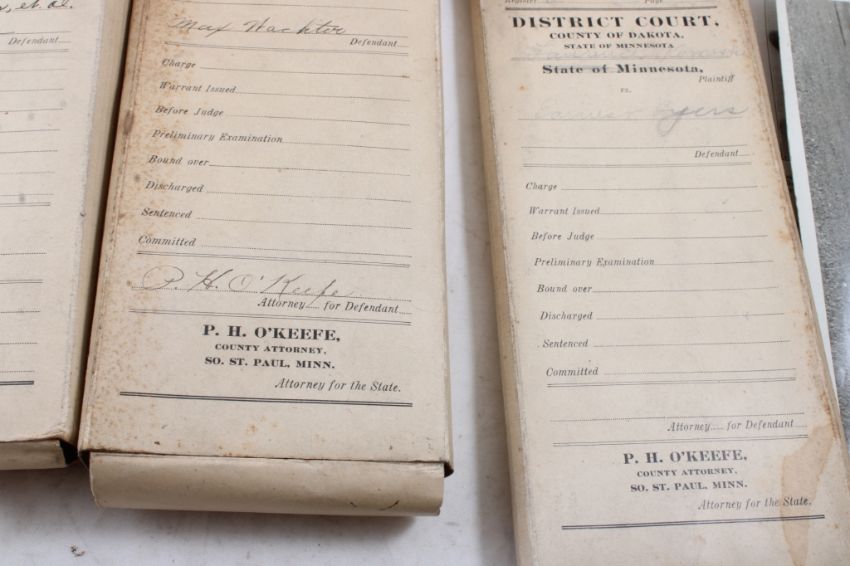 et al.
Defendant
Max Wachter
Defendant
Charge
Warrant Issued
Before Judge
Preliminary Examination
Bound over
Discharged
Sentenced
Committed
P. H. O'Keefe
Attorney for Defendant
P. H. O'KEEFE,
COUNTY ATTORNEY,
SO. ST. PAUL, MINN.
Attorney for the State.
DISTRICT COURT,
COUNTY OF DAKOTA,
STATE OF MINNESOTA
State of Minnesota,
Plaintiff
vs.
Defendant
Charge
Warrant Issued
Before Judge
Preliminary Examination
Bound over
Discharged
Sentenced
Committed
Attorney for Defendant
P. H. O'KEEFE,
COUNTY ATTORNEY,
SO. ST. PAUL, MINN.
Attorney for the State.